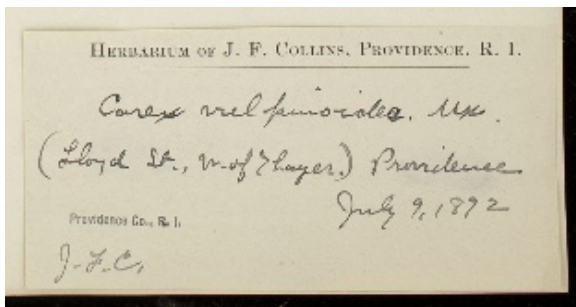 HERBARIUM OF J. F. COLLINS, PROVIDENCE, R. I.
Carex vulpinoidea. Mx.
(Lloyd St., w. of Thayer.) Providence
July 9, 1892
Providence Co., R. I.
J. F. C.